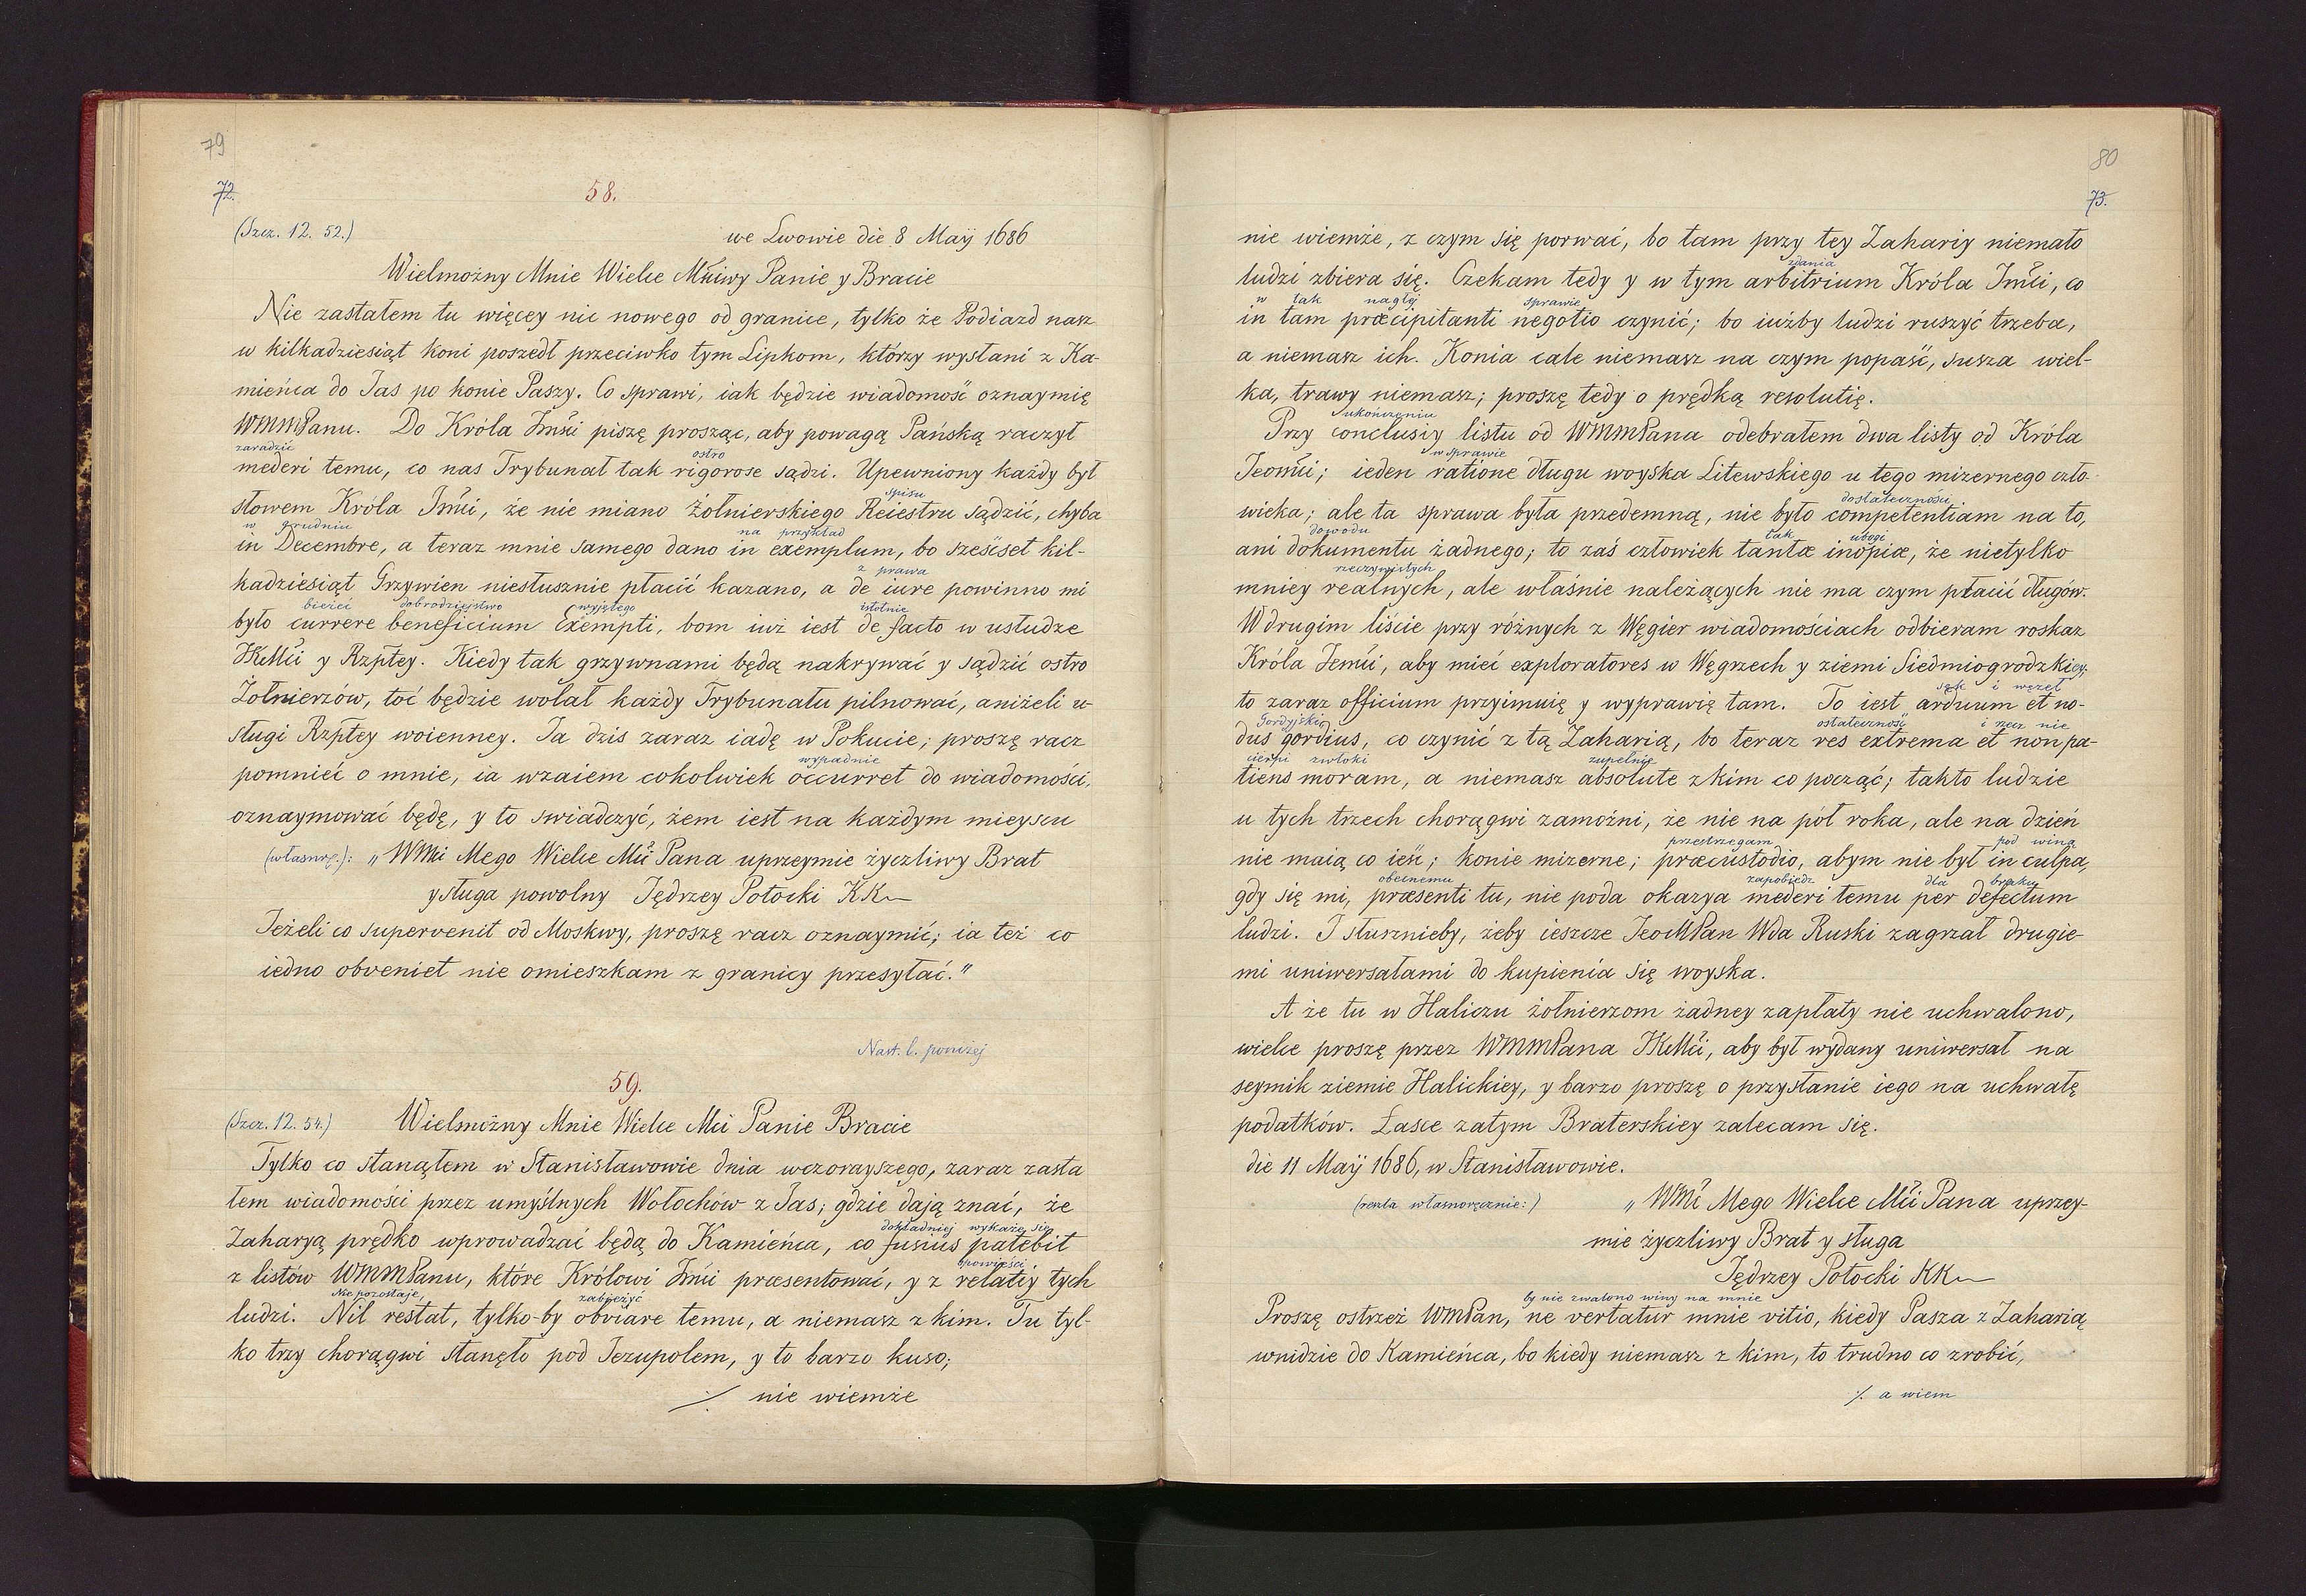 79
72.
58.
(Szcz. 12. 52.)
we Lwowie die 8 Maÿ 1686
Wielmożny Mnie Wielce Mściwy Panie y Bracie
Nie zastałem tu więcey nic nowego od granice, tylko że Podiazd nasz
w kilkadziesiąt koni poszedł przeciwko tym Lipkom, którzy wysłani z Ka-
mieńca do Jas po konie Paszy. Co sprawi, iak będzie wiadomość oznaymię
WMMPanu. Do Króla Jmści piszę prosząc, aby powagą Pańską raczył
zaradzić ostro
mederi temu, co nas Trybunał tak rigorose sądzi. Upewniony każdy był
spisu
słowem Króla Jmści, że nie miano Żołnierskiego Reiestru sądzić, chyba
w grudniu na przykład
in Decembre, a teraz mnie samego dano in exemplum, bo sześćset kil-
z prawa
kadziesiąt Grzywien niesłusznie płacić kazano, a de iure powinno mi
bieżeć dobrodziejstwo wyjętego istotnie
było currere beneficium Exempti, bom iuż iest de facto w usłudze
JKMści y Rzptey. Kiedy tak grzywnami będą nakrywać y sądzić ostro
Żołnierzów, toć będzie wolał każdy Trybunału pilnować, aniżeli u-
sługi Rzptey woienney. Ja dzis zaraz iadę w Pokucie; proszę racz
wypadnie
pomnieć o mnie, ia wzaiem cokolwiek occurret do wiadomości,
oznaymować będę, y to swiadczyć, żem iest na każdym mieyscu
(własnrę.): „WMści Mego Wielce Mści Pana uprzeymie życzliwy Brat
y sługa powolny Jędrzey Potocki KK
Jeżeli co supervenit od Moskwy, proszę racz oznaymić; ia też co
iedno obveniet nie omieszkam z granicy przesyłać."
Nast. l. poniżej
59.
(Szcz. 12. 54.) Wielmożny Mnie Wielce Mści Panie Bracie
Tylko co stanąłem w Stanisławowie dnia wczorayszego, zaraz zasta
łem wiadomości przez umyślnych Wołochów z Jas; gdzie dają znać, że
dokładniej wykaże się
Zaharyą prędko wprowadzać będą do Kamieńca, co fusius patebit
opowieści
z listów WMMPanu, które Królowi Jmści præsentować, y z relatiy tych
Nie pozostaje, zabieżyć
ludzi. Nil restat, tylko-by obviare temu, a niemasz z kim. Tu tyl-
ko trzy chorągwi stanęło pod Jezupolem, y to barzo kuso;
⁒ nie wiemże
80
73.
nie wiemże, z czym się porwać, bo tam przy tey Zahariy niemało
zdania
ludzi zbiera się. Czekam tedy y w tym arbitrium Króla Jmści, co
w tak nagłej sprawie
in tam præcipitanti negotio czynić; bo iużby ludzi ruszyć trzeba,
a niemasz ich. Konia cale niemasz na czym popaść, susza wiel-
ka, trawy niemasz; proszę tedy o prędką resolutię.
ukończeniu
Przy conclusiy listu od WMMPana odebrałem dwa listy od Króla
w sprawie
Jeomści; ieden ratione długu woyska Litewskiego u tego mizernego czło-
dostateczności
wieka; ale ta sprawa była przedemną, nie było competentiam na to,
dowodu tak ubogi
ani dokumentu żadnego; to zaś człowiek tantæ inopiæ, że nietylko
rzeczywistych
mniey realnych, ale właśnie należących nie ma czym płacić długów.
W drugim liście przy różnych z Węgier wiadomościach odbieram roskaz
Króla Jemści, aby mieć exploratores w Węgrzech y ziemi Siedmiogrodzkiey,
sęk i węzeł
to zaraz officium przyimuię y wyprawię tam. To iest arduum et no-
Gordyjski ostateczność i rzecz nie
dus gordius, co czynić z tą Zaharią, bo teraz res extrema et non pa-
cierpi zwłoki zupełnie
tiens moram, a niemasz absolute z kim co począć; takto ludzie
u tych trzech chorągwi zamożni, że nie na pół roka, ale na dzień
przestrzegam pod winą
nie maią co ieść; konie mizerne; præcustodio, abym nie był in culpa,
obecnemu zapobiedz dla braku
gdy się mi, præsenti tu, nie poda okazya mederi temu per defectum
ludzi. I słusznieby, żeby ieszcze JeoMPan Wda Ruski zagrzał drugie-
mi uniwersałami do kupienia się woyska.
A że tu w Haliczu żołnierzom żadney zapłaty nie uchwalono,
wielce proszę przez WMMPana JKMści, aby był wydany uniwersał na
seymik ziemie Halickiey, y barzo proszę o przysłanie iego na uchwałę
podatków. Łasce zatym Braterskiey zalecam się.
die 11 Maÿ 1686, w Stanisławowie.
(reszta własnoręcznie:) „WMści Mego Wielce Mści Pana uprzey-
mie życzliwy Brat y sługa
Jędrzey Potocki KK
by nie zwalono winy na mnie
Proszę ostrzeż WMPan, ne vertatur mnie vitio, kiedy Pasza z Zaharią
wnidzie do Kamieńca, bo kiedy niemasz z kim, to trudno co zrobić,
⁒ a wiem